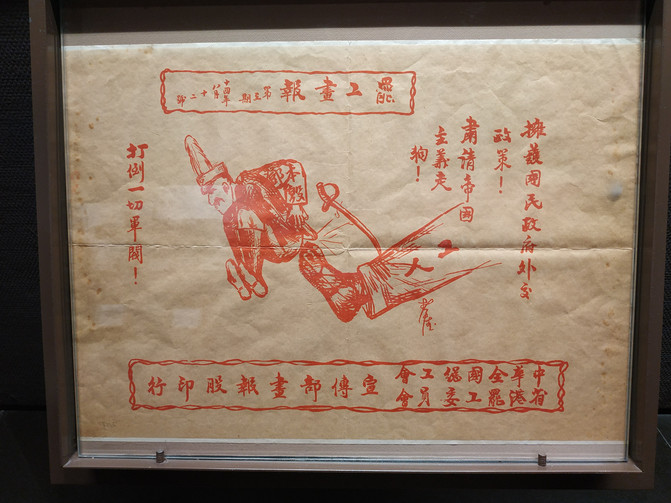 罷工畫報 第五期 十四年八月十二號
擁護國民政府外交
政策！
肅請帝國
主義走
狗！
鄧
本殷
工人
打倒一切軍閥！
中華全國總工會
省港罷工委員會
宣傳部畫報股印行